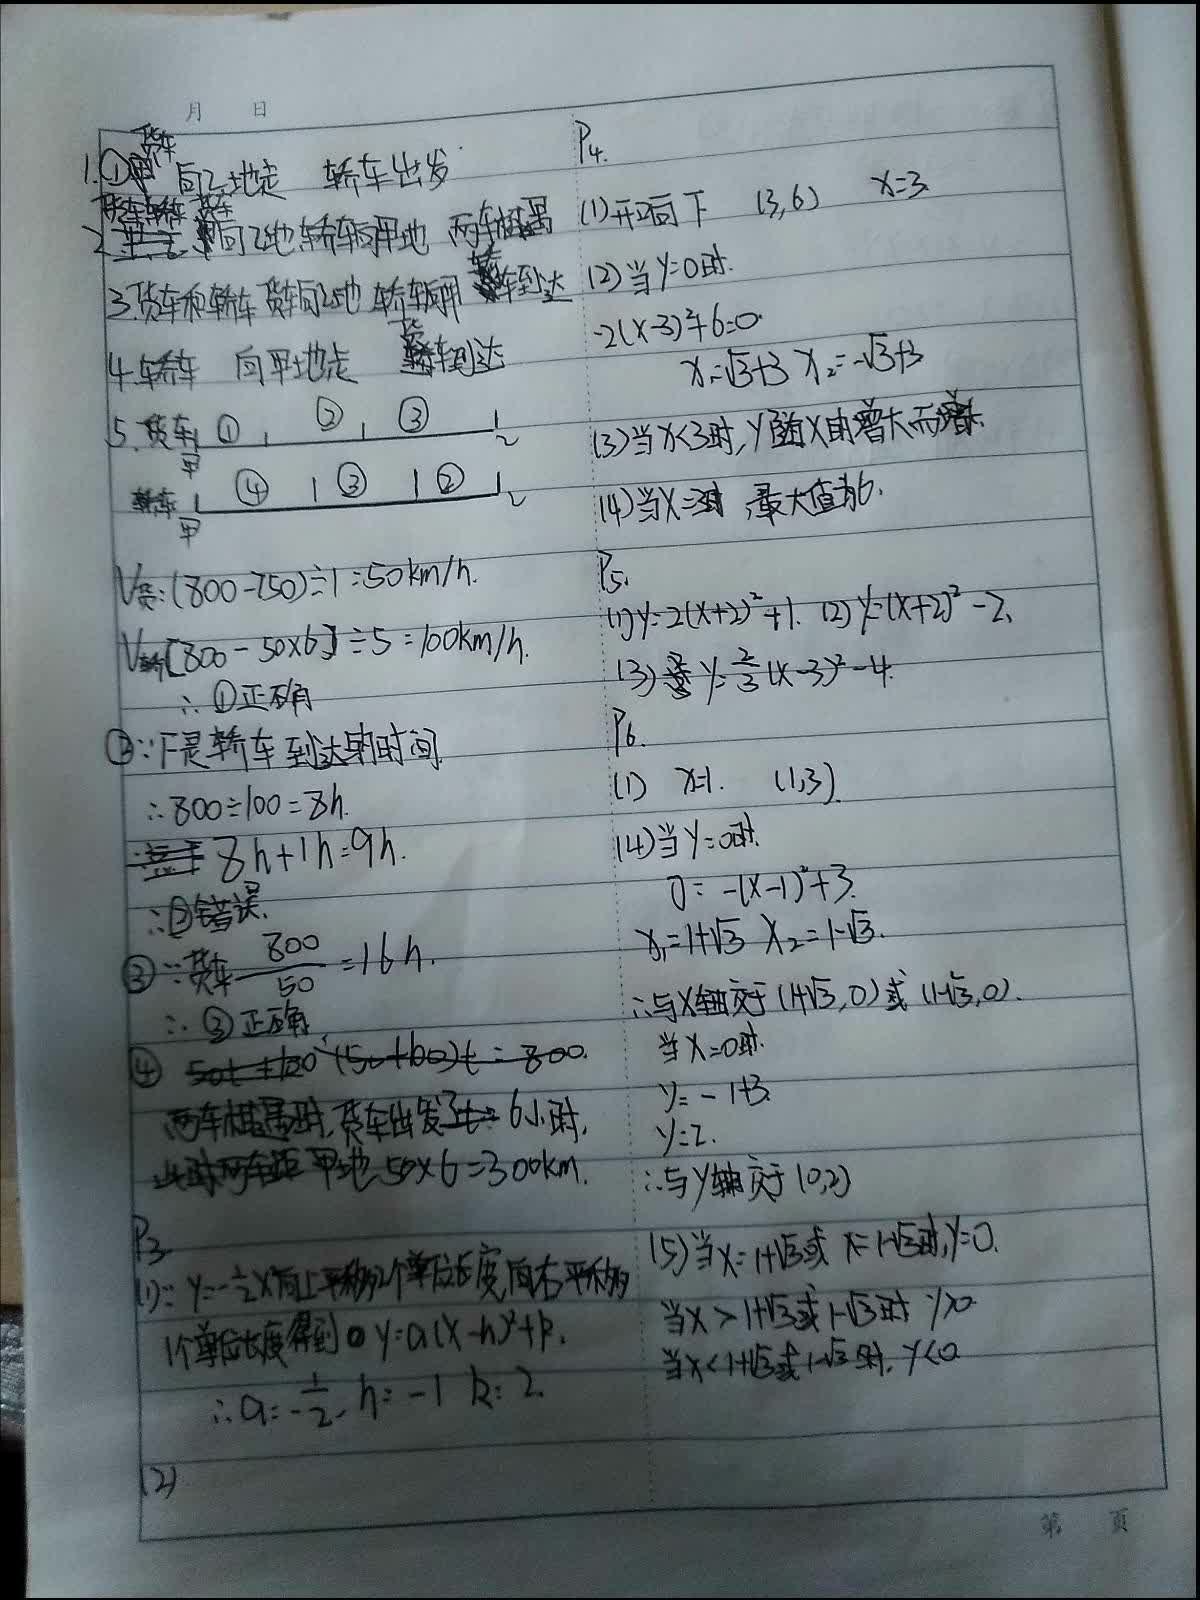 月 日
货车
1.① 向乙地走 轿车出发
2. 向乙地轿车向甲地 两车相遇
3.货车和轿车 货车向乙地 轿车向甲 车到达
4.轿车 向甲地走 货车到达
5.货车 ① ② ③
甲 乙
轿车 ④ ③ ②
甲 乙
V货:(800-750)÷1=50km/h.
V轿[800-50×6]÷5=100km/h.
∴①正确
②∵F是轿车到达的时间
∴800÷100=8h.
8h+1h=9h.
∴②错误.
③∵货车 800/50 =16h.
∴③正确
④ 50t+100 (50+100)t=800.
两车相遇时,货车出发了 6小时,
此时两车距甲地50×6=300km.
P3.
(1)∵y=-1/2x²向上平移2个单位长度,向右平移
1个单位长度得到 y=a(x-h)²+k.
∴a=-1/2, h=-1 k=2.
(2)
P4.
(1)开口向下 (3,6) x=3
(2)当y=0时.
-2(x-3)²+6=0
x₁=√3+3 x₂=-√3+3
(3)当x<3时,y随x的增大而增大.
(4)当x=3时,最大值为6.
P5.
(1)y=2(x+2)²+1. (2)y=(x+2)²-2.
(3) y=2/3(x-3)²-4.
P6.
(1) x=1. (1,3)
(4)当y=0时.
0=-(x-1)²+3.
x₁=1+√3 x₂=1-√3.
∴与x轴交于(1+√3,0)或(1-√3,0).
当x=0时.
y=-1+3
y=2.
∴与y轴交于(0,2)
(5)当x=1+√3或x=1-√3时,y=0.
当x>1+√3或1-√3时 y>0
当x<1+√3或1-√3时,y<0
第 页